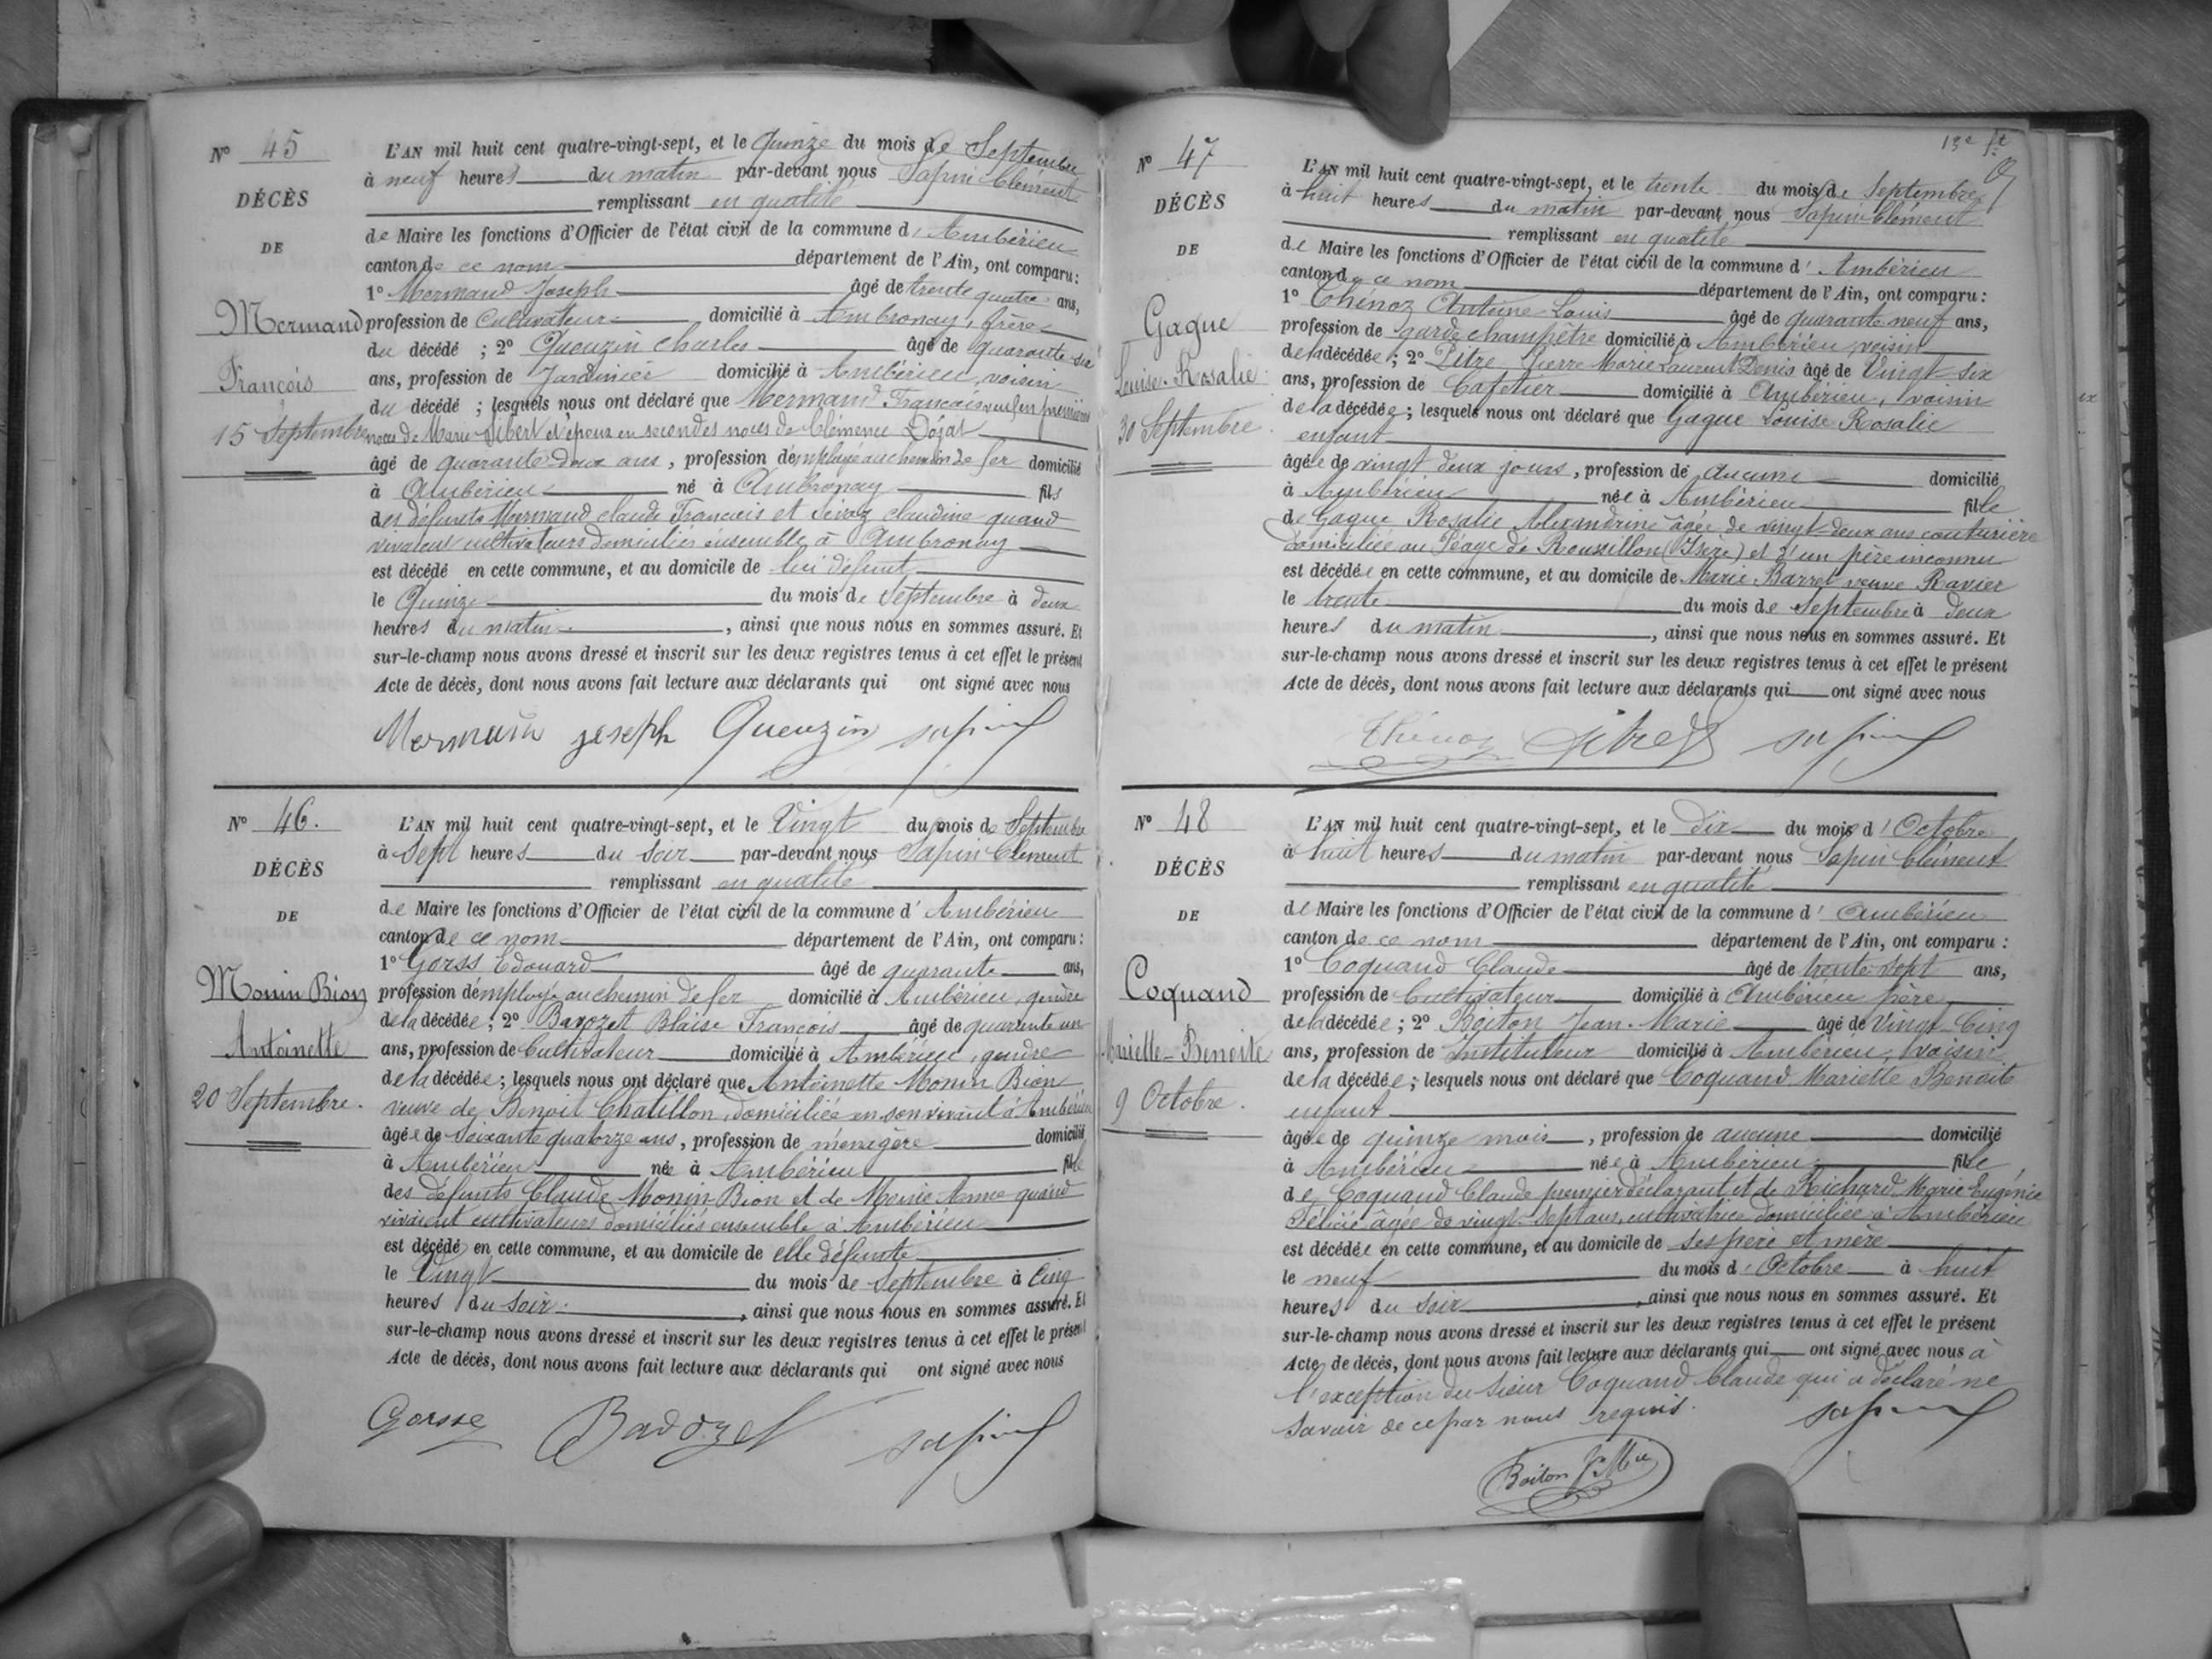 Nº 45
DÉCÈS
DE
Mermand
François
15 Septembre
L'AN mil huit cent quatre-vingt-sept, et le Quinze du mois de Septembre
à neuf heures du matin par-devant nous Sapin Clément
remplissant en qualité
de Maire les fonctions d'Officier de l'état civil de la commune d' Ambérieu
canton de ce nom département de l'Ain, ont comparu :
1º Mermand Joseph âgé de trente quatre ans,
profession de Cultivateur domicilié à Ambronay, frère
du décédé ; 2º Queuzin Charles âgé de quarante six
ans, profession de Jardinier domicilié à Ambérieu, voisin
du décédé ; lesquels nous ont déclaré que Mermand François veuf en premières
noces de Marie Sibert et époux en secondes noces de Clémence Dójat
âgé de quarante deux ans, profession d'employé au chemin de fer domicilié
à Ambérieu né à Ambronay fils
des défunts Mermand Claude François et Claudine quand
vivaient cultivateurs domiciliés ensemble à Ambronay
est décédé en cette commune, et au domicile de lui défunt
le Quinze du mois de Septembre à deux
heures du matin, ainsi que nous nous en sommes assuré. Et
sur-le-champ nous avons dressé et inscrit sur les deux registres tenus à cet effet le présent
Acte de décès, dont nous avons fait lecture aux déclarants qui ont signé avec nous
Mermand joseph Queuzin sapin
Nº 46.
DÉCÈS
DE
Monin Bion
Antoinette
20 Septembre.
L'AN mil huit cent quatre-vingt-sept, et le Vingt du mois de Septembre
à Sept heures du soir par-devant nous Sapin Clément
remplissant en qualité
de Maire les fonctions d'Officier de l'état civil de la commune d' Ambérieu
canton de ce nom département de l'Ain, ont comparu :
1º Gorss Edouard âgé de quarante ans,
profession d'employé au chemin de fer domicilié à Ambérieu, gendre
de la décédée ; 2º Bavozet Blaise François âgé de quarante un
ans, profession de Cultivateur domicilié à Ambérieu, gendre
de la décédée ; lesquels nous ont déclaré que Antoinette Monin Bion
veuve de Benoit Chatillon, domiciliée en son vivant à Ambérieu
âgée de soixante quatorze ans, profession de ménagère domicilié
à Ambérieu née à Ambérieu fille
des défunts Claude Monin-Bion et de Marie Anne quand
vivaient cultivateurs domiciliés ensemble à Ambérieu
est décédé en cette commune, et au domicile de elle défunte
le Vingt du mois de Septembre à Cinq
heures du soir, ainsi que nous nous en sommes assuré. Et
sur-le-champ nous avons dressé et inscrit sur les deux registres tenus à cet effet le présent
Acte de décès, dont nous avons fait lecture aux déclarants qui ont signé avec nous
Gorsse Bavozet sapin
13e ft
Nº 47
DÉCÈS
DE
Gague
Louise-Rosalie
30 Septembre.
L'AN mil huit cent quatre-vingt-sept, et le trente du mois de Septembre
à huit heures du matin par-devant nous Sapin Clément
remplissant en qualité
de Maire les fonctions d'Officier de l'état civil de la commune d' Ambérieu
canton de ce nom département de l'Ain, ont comparu :
1º Thénoz Antoine Louis âgé de quarante-neuf ans,
profession de garde champêtre domicilié à Ambérieu voisin
de la décédée ; 2º Pitre Pierre Marie Laurent Denis âgé de Vingt-six
ans, profession de Cafetier domicilié à Ambérieu, voisin
de la décédée ; lesquels nous ont déclaré que Gague Louise Rosalie
enfant
âgée de vingt deux jours, profession de aucune domicilié
à Ambérieu née à Ambérieu fille
de Gague Rosalie Alexandrine âgée de vingt-deux ans couturière
domiciliée au Péage de Roussillon (Isère) et d'un père inconnu
est décédée en cette commune, et au domicile de Marie Barret veuve Ravier
le trente du mois de Septembre à deux
heures du matin, ainsi que nous nous en sommes assuré. Et
sur-le-champ nous avons dressé et inscrit sur les deux registres tenus à cet effet le présent
Acte de décès, dont nous avons fait lecture aux déclarants qui ont signé avec nous
Thénoz Pitre sapin
Nº 48
DÉCÈS
DE
Coquand
Marielle-Benoite
9 Octobre.
L'AN mil huit cent quatre-vingt-sept, et le dix du mois d'Octobre
à huit heures du matin par-devant nous Sapin Clément
remplissant en qualité
de Maire les fonctions d'Officier de l'état civil de la commune d' Ambérieu
canton de ce nom département de l'Ain, ont comparu :
1º Coquand Claude âgé de trente-sept ans,
profession de Cultivateur domicilié à Ambérieu père
de la décédée ; 2º Boiton Jean-Marie âgé de Vingt-Cinq
ans, profession de Instituteur domicilié à Ambérieu, voisin
de la décédée ; lesquels nous ont déclaré que Coquand Marielle Benoite
enfant
âgée de quinze mois, profession de aucune domicilié
à Ambérieu née à Ambérieu fille
de Coquand Claude premier déclarant et de Richard Marie Eugénie
Félicie âgée de vingt-sept ans, cultivatrice domiciliée à Ambérieu
est décédée en cette commune, et au domicile de ses père et mère
le neuf du mois d'Octobre à huit
heures du soir, ainsi que nous nous en sommes assuré. Et
sur-le-champ nous avons dressé et inscrit sur les deux registres tenus à cet effet le présent
Acte de décès, dont nous avons fait lecture aux déclarants qui ont signé avec nous à
l'exception du sieur Coquand Claude qui a déclaré ne
savoir de ce par nous requis. sapin
Boiton Jn Mie